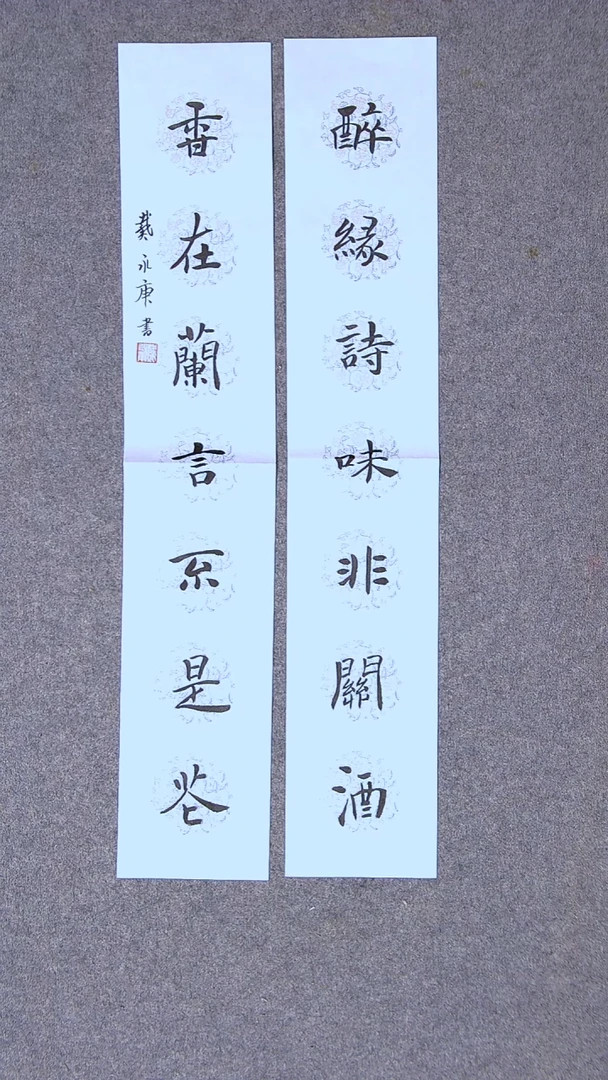 醉緣詩味非關酒
香在蘭言不是花
戴永庚書